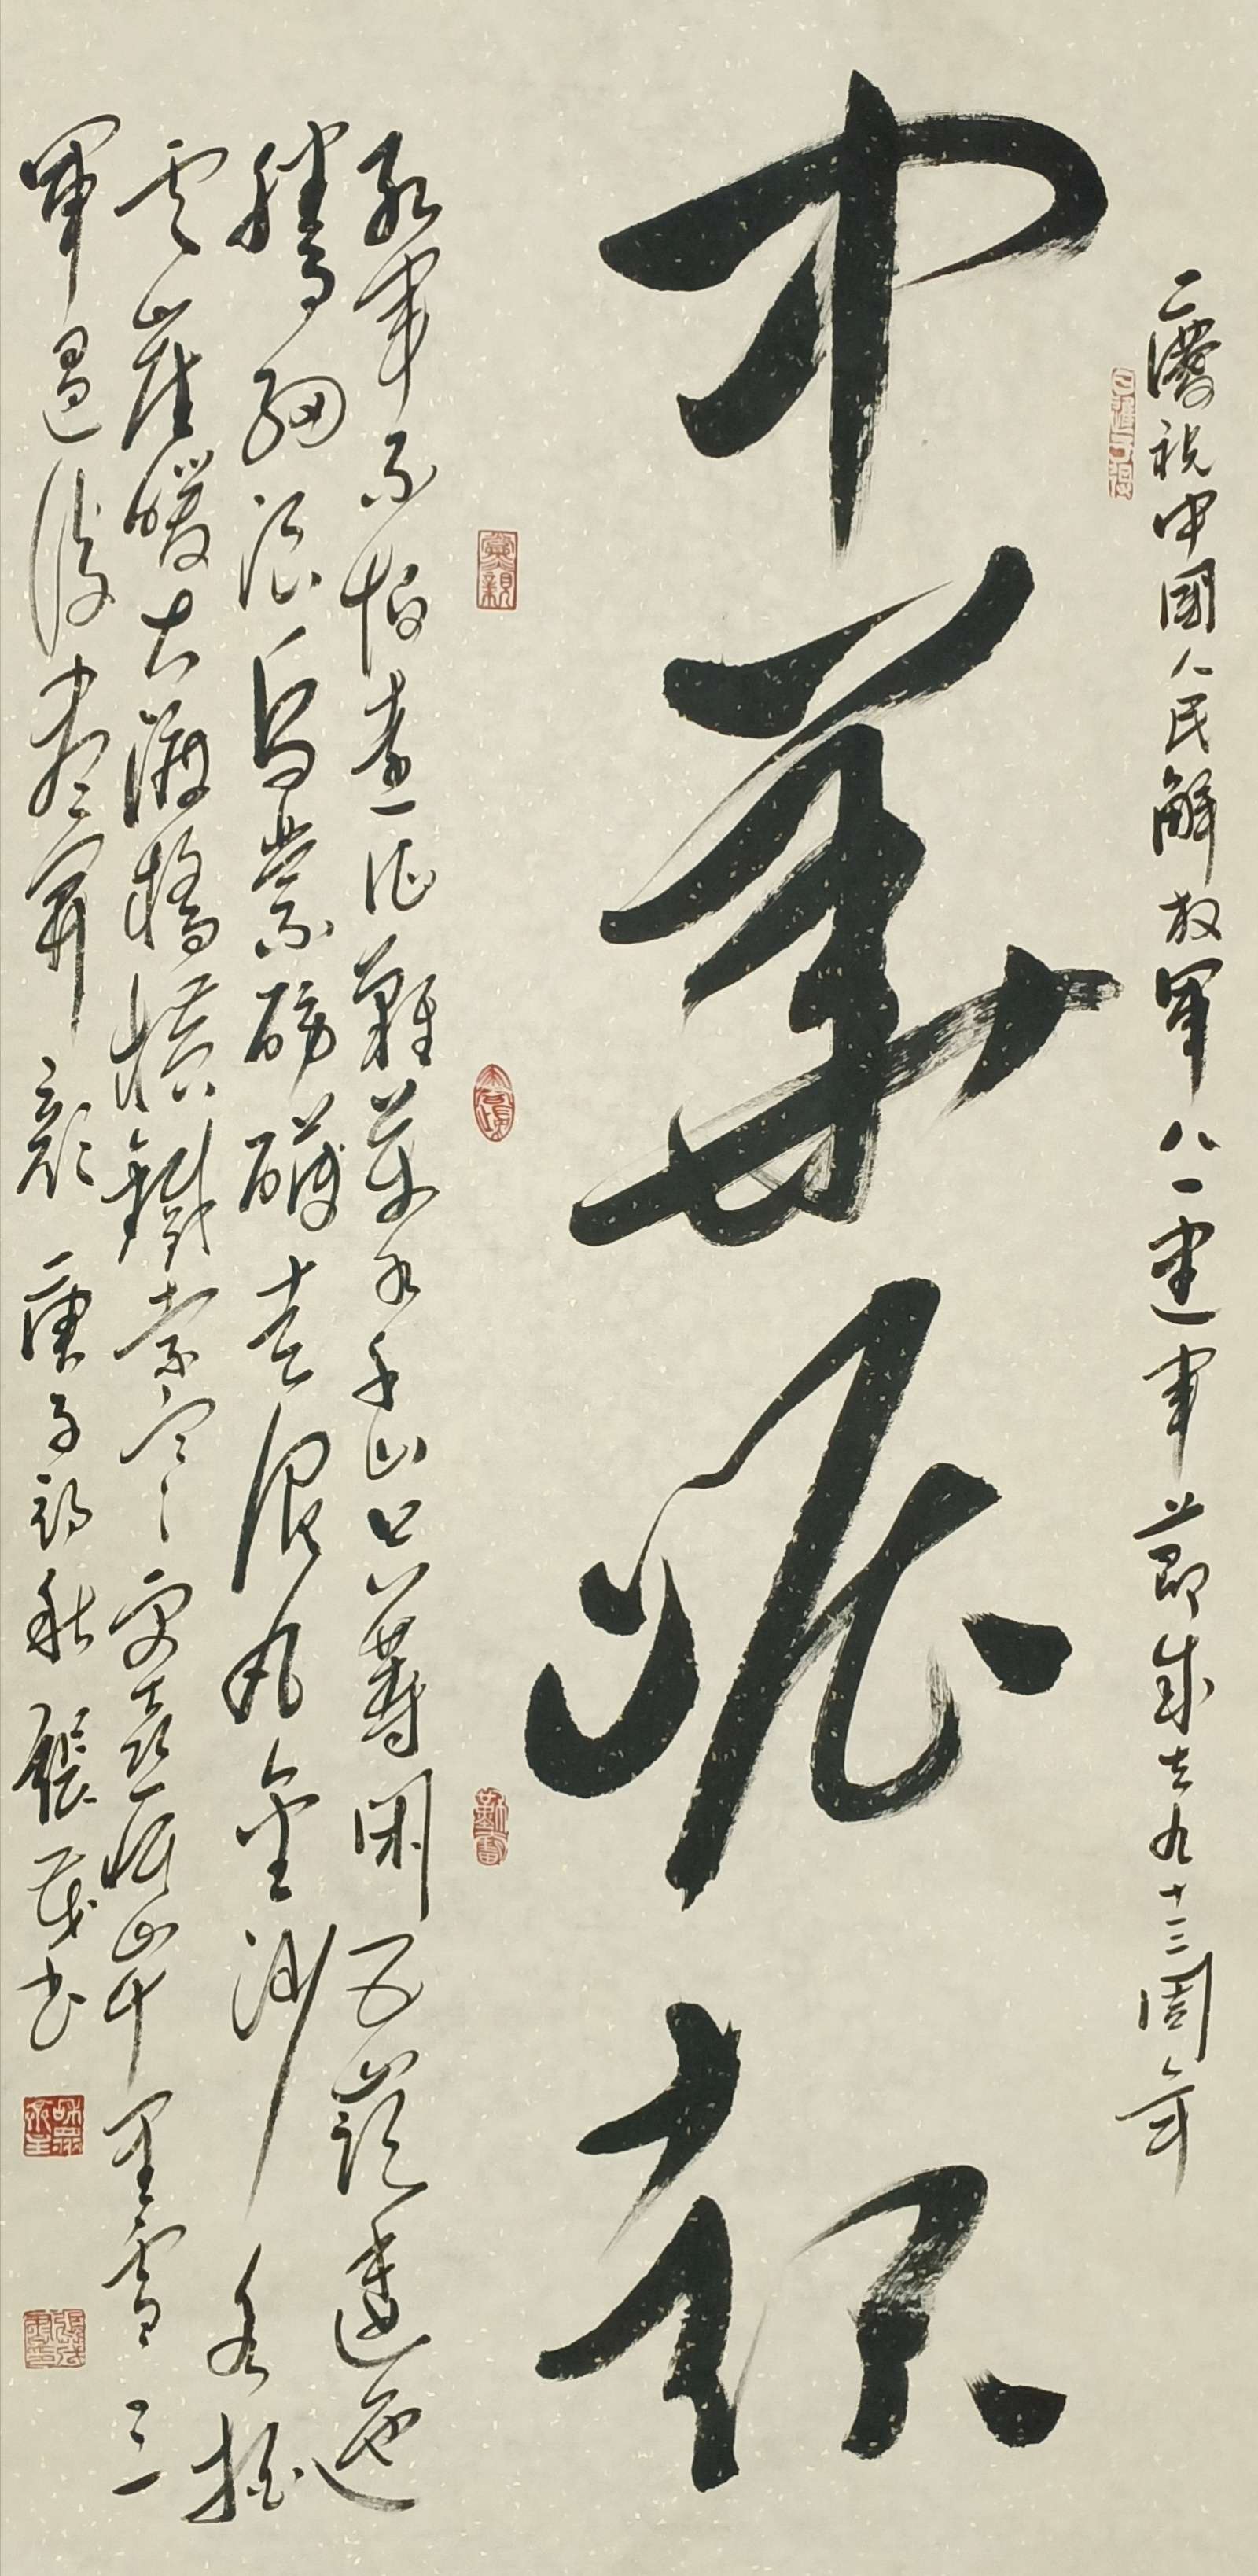 慶祝中國人民解放軍八一建軍節成立九十三周年
中華
紅軍不怕遠征難萬水千山只等閑五嶺逶迤
騰細浪烏蒙磅礴走泥丸金沙水拍
雲崖暖大渡橋橫鐵索寒更喜岷山千里雪三
軍過後盡開顏 庚子初秋 張 書